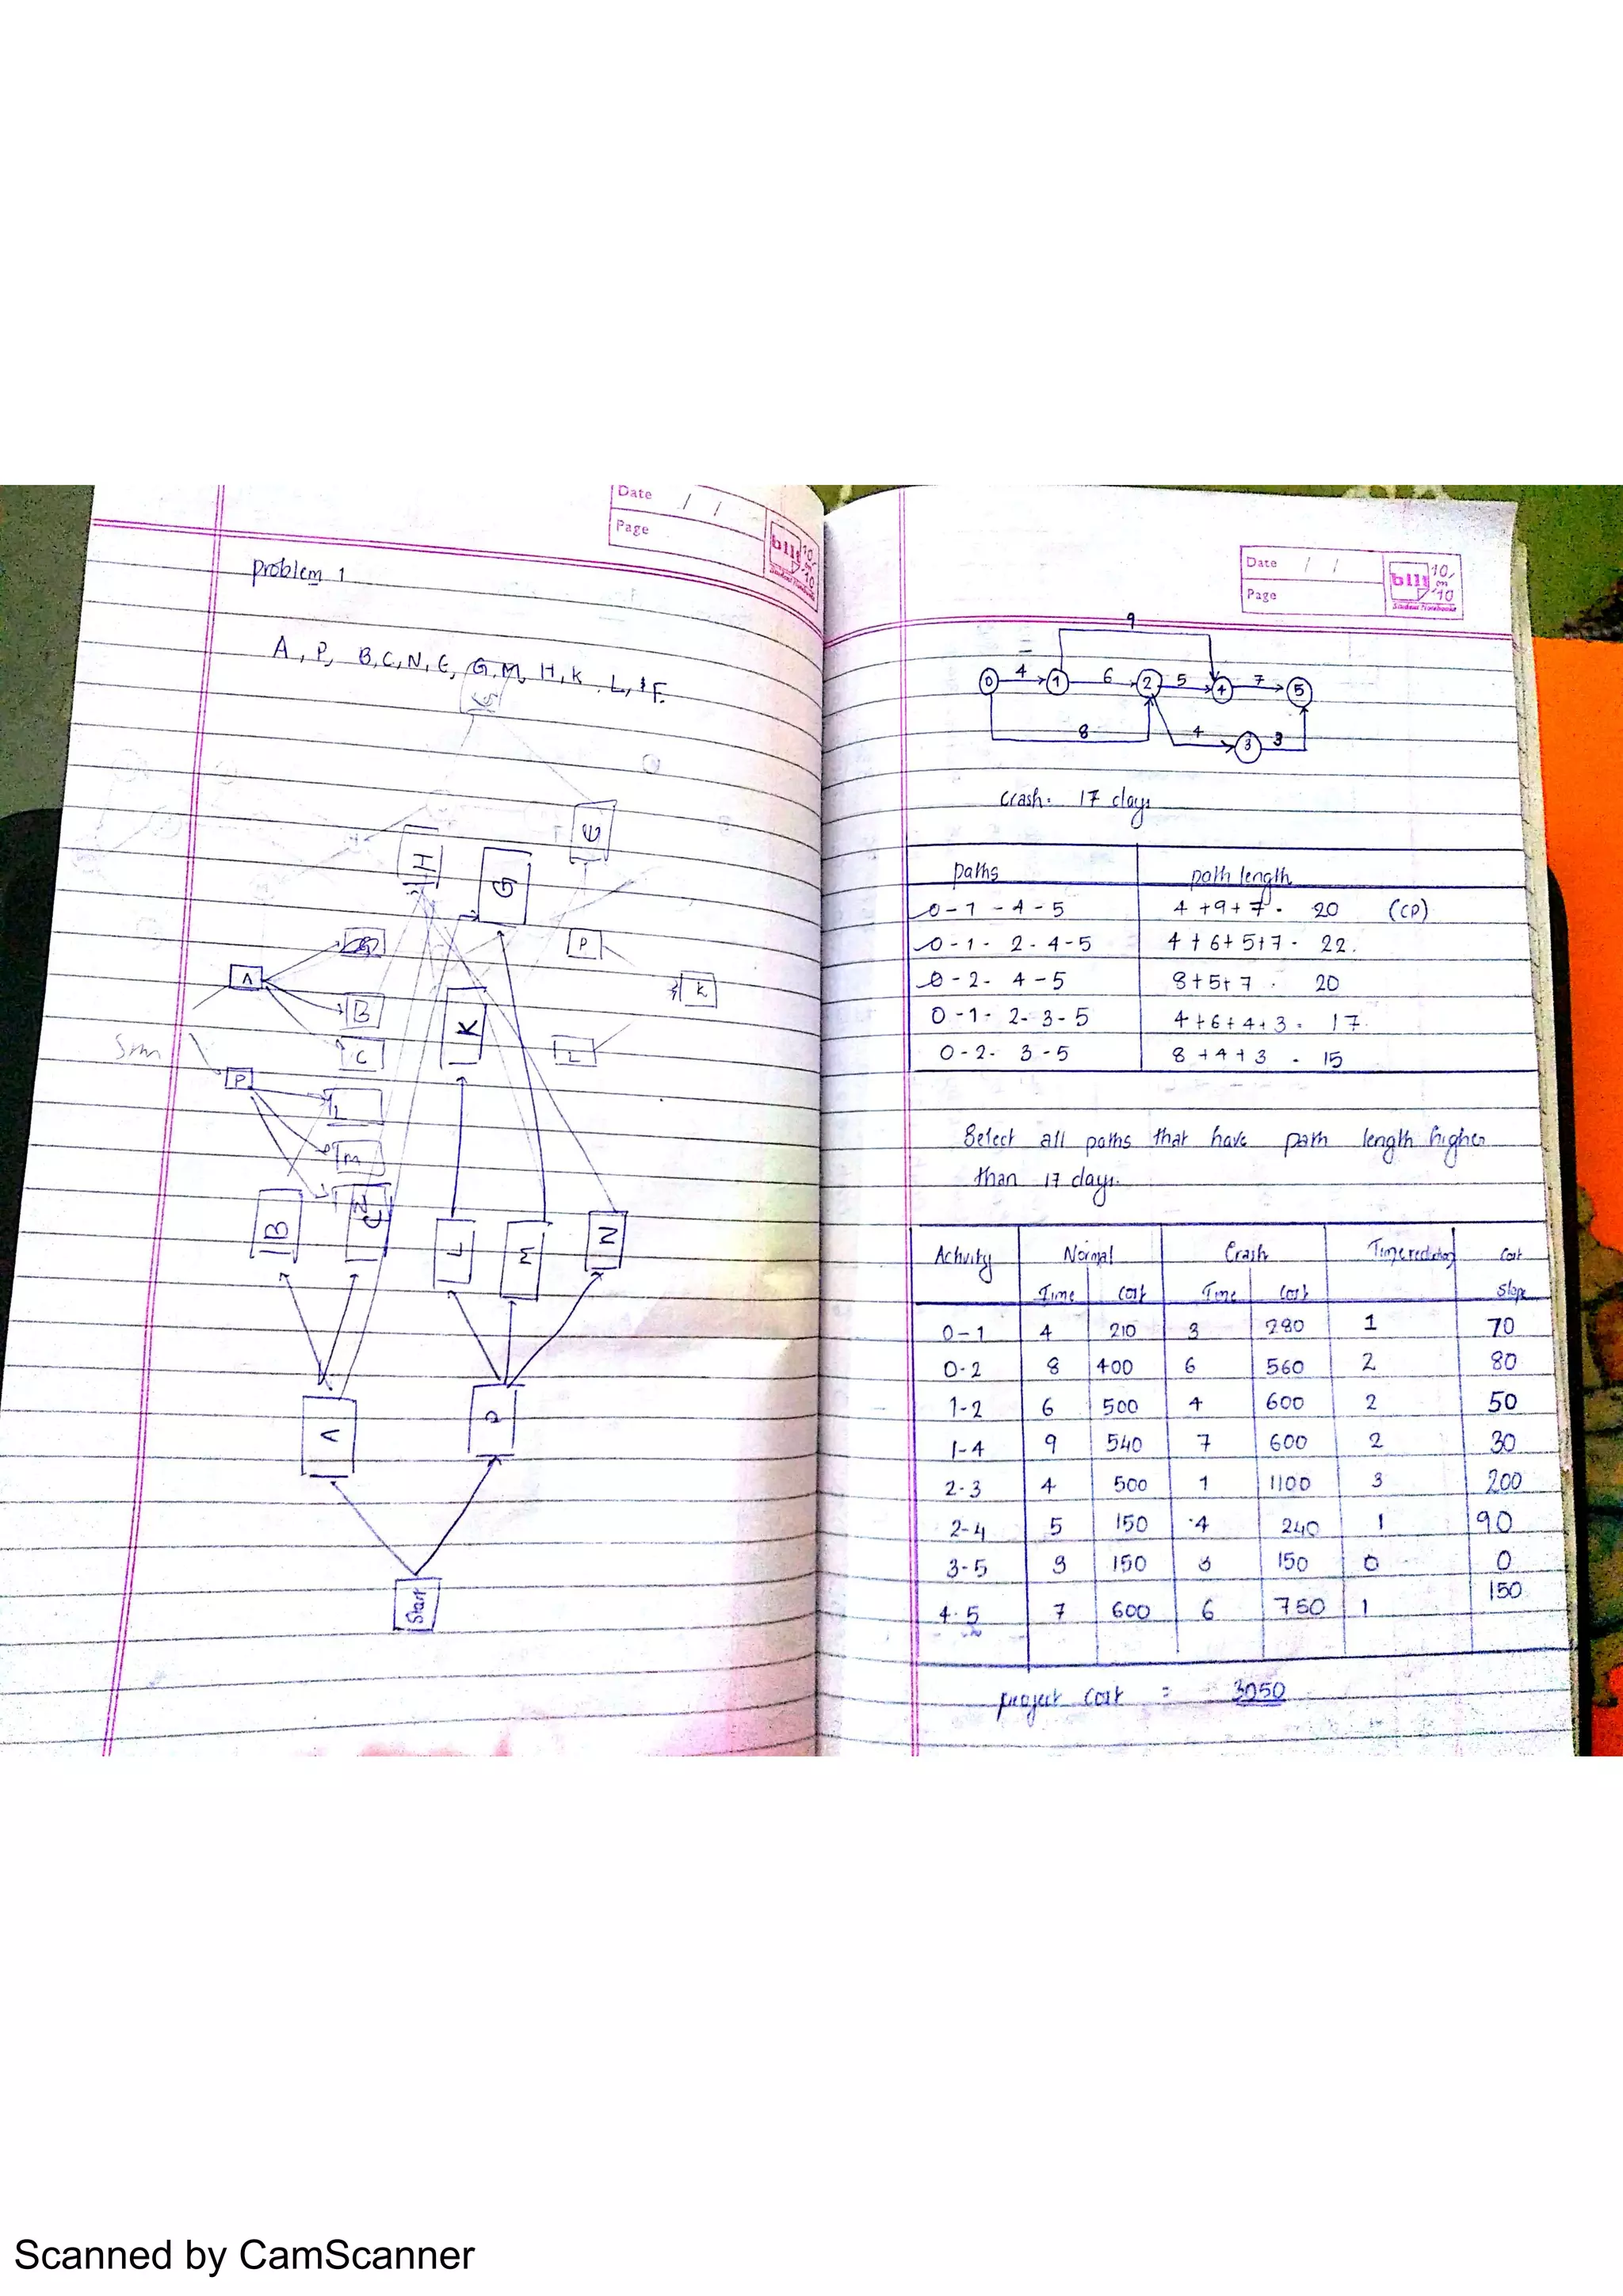 Date / /
Page
bilt 10 on 10
Student Notebooks
Problem 1
A, P, B, C, N, E, G, M, H, K, L, F.
E
H
G
P
A
B
K
K
C
L
P
L
m
N
B
C
L
M
N
A
P
Start
Date / /
Page
bilt 10 on 10
Student Notebooks
9
0 4 1 6 2 5 4 7 5
8 4 3 3
Crash: 17 days
paths path length
0-1-4-5 4+9+7. 20 (CP)
0-1-2-4-5 4+6+5+7- 22.
0-2-4-5 8+5+7. 20
0-1-2-3-5 4+6+4+3= 17.
0-2-3-5 8+4+3 - 15
Select all paths that have path length higher
than 17 days.
Activity Normal Crash Time reduction Cost
Time Cost Time Cost Slope
0-1 4 210 3 280 1 70
0-2 8 400 6 560 2 80
1-2 6 500 4 600 2 50
1-4 9 540 7 600 2 30
2-3 4 500 1 1100 3 200
2-4 5 150 4 240 1 90
3-5 3 150 3 150 0 0
4-5 7 600 6 750 1 150
project cost = 3050
Scanned by CamScanner